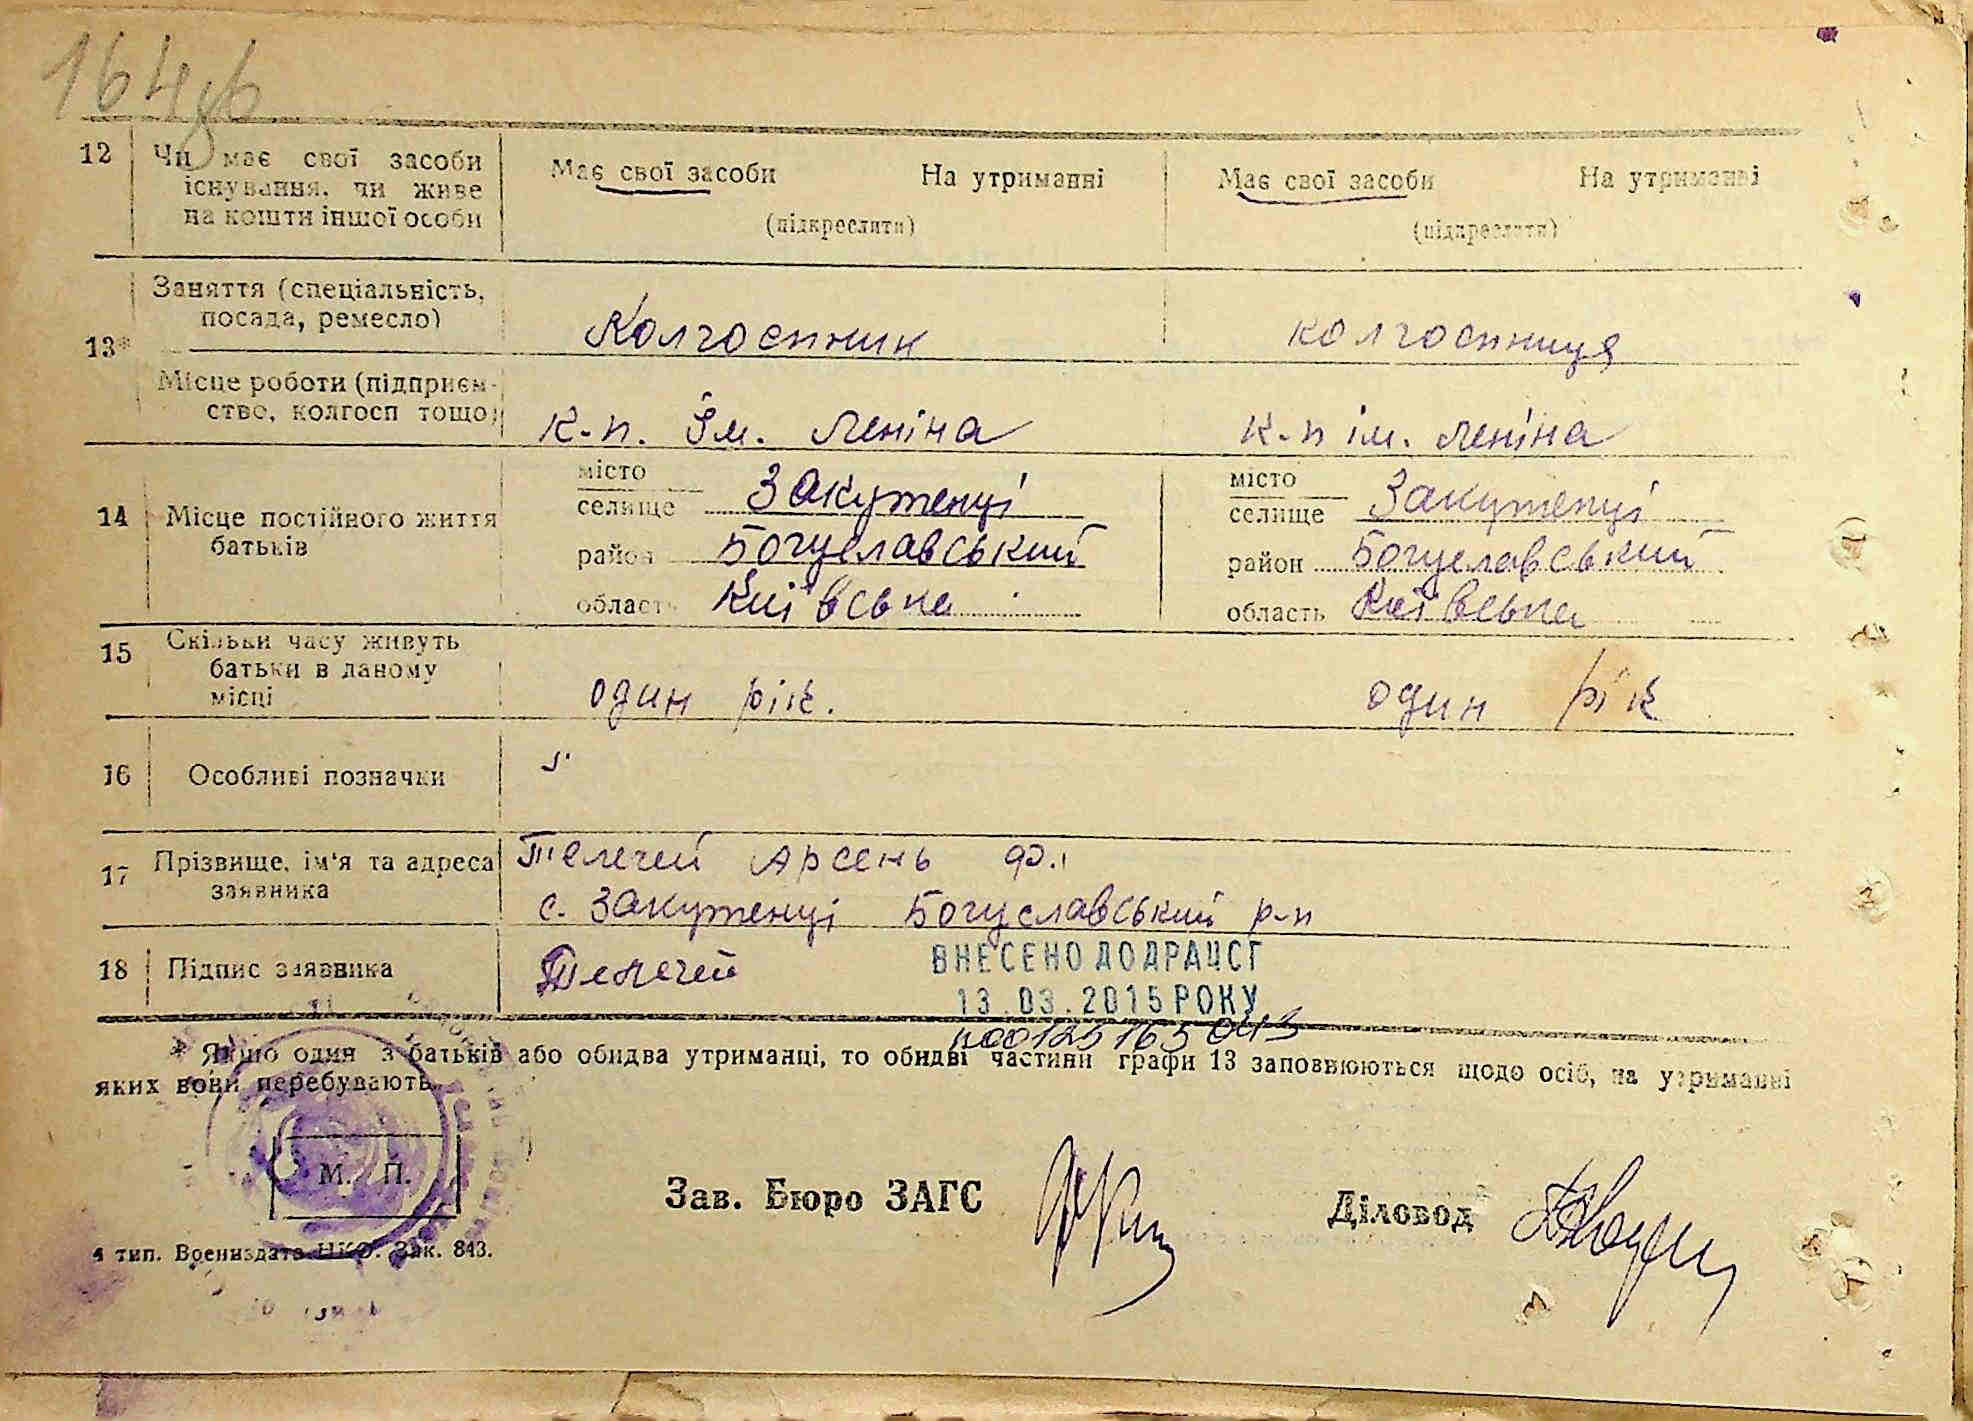 164зв
12 Чи має свої засоби існування, чи живе на кошти іншої особи
Має свої засоби На утриманні
(підкреслити)
Має свої засоби На утриманні
(підкреслити)
13* Заняття (спеціальність, посада, ремесло)
Колгоспник
колгоспниця
Місце роботи (підприємство, колгосп тощо)
к-п. ім. Леніна
к-п ім. Леніна
14 Місце постійного життя батьків
місто
селище Закутенці
район Богуславський
область Київська
місто
селище Закутенці
район Богуславський
область Київська
15 Скільки часу живуть батьки в даному місці
один рік.
один рік
16 Особливі позначки
17 Прізвище, ім'я та адреса заявника
Телегей Арсень Ф.
с. Закутенці Богуславський р-н
18 Підпис заявника
Телегей
ВНЕСЕНО ДО ДРАЦСГ
13.03.2015 РОКУ
n00125165043
* Якщо один з батьків або обидва утриманці, то обидві частини графи 13 заповнюються щодо осіб, на утриманні
яких вони перебувають.
М. П.
Зав. Бюро ЗАГС
Діловод
4 тип. Воениздата НКО. Зак. 843.